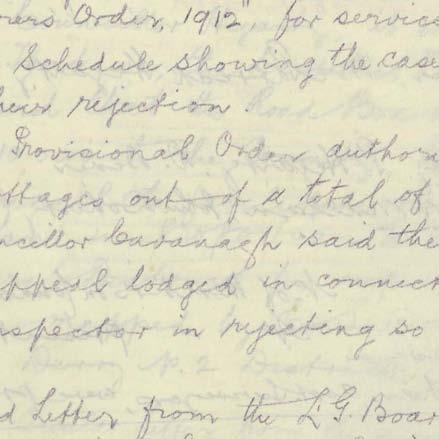 rers Order, 1912", for servic
Schedule showing the case
heir rejection.
Provisional Order author
ttages out of a total of
ncellor Cavanagh said the
ppeal lodged in connec
nspector in rejecting so
d Letter from the L.G. Boar